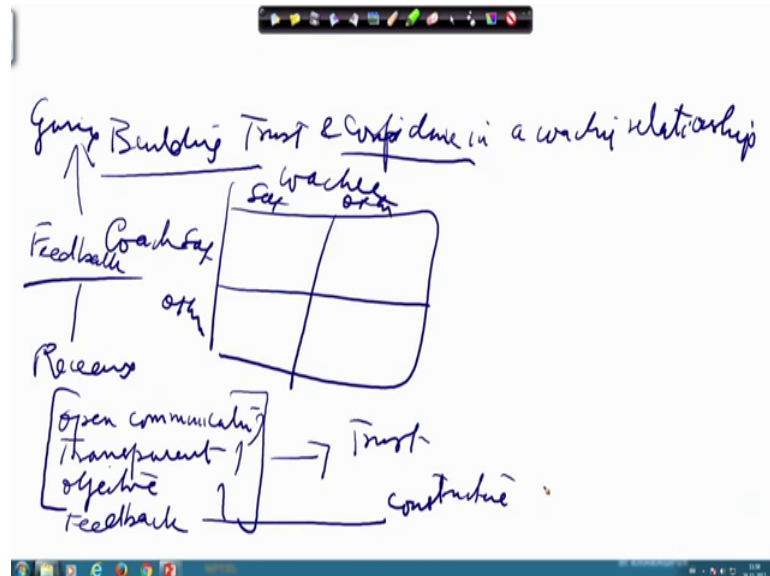 Giving Building Trust & Confidence in a coaching relationship
Coachee
Self other
Feedback Coach Self
other
Receiving
open communication
Transparent
objective
Feedback
Trust
constructive
NPTEL